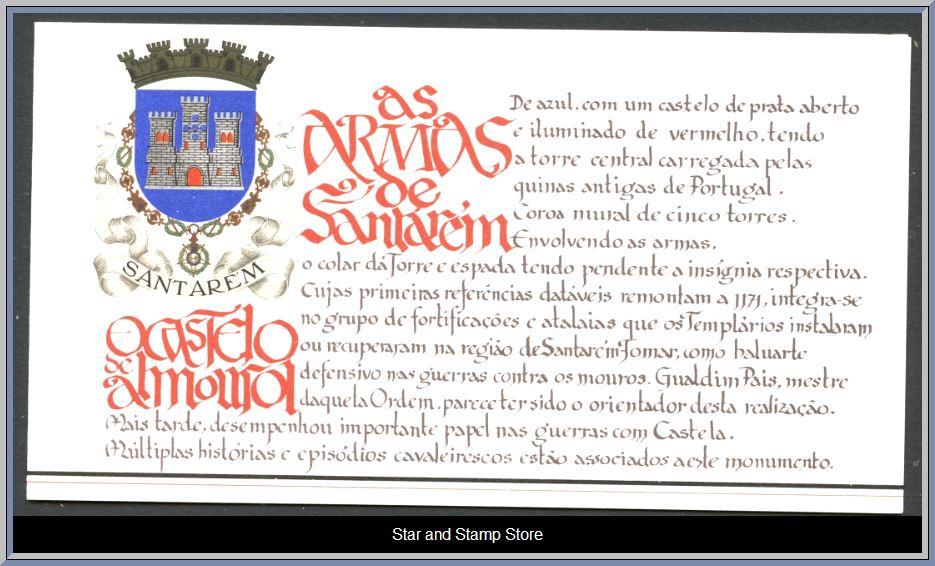 SANTARÉM
as
ARMAS
de
Santarém
De azul, com um castelo de prata aberto
e iluminado de vermelho, tendo
a torre central carregada pelas
quinas antigas de Portugal.
Coroa mural de cinco torres.
Envolvendo as armas,
o colar da Torre e espada tendo pendente a insígnia respectiva.
O CASTELO
de
almourol
Cujas primeiras referências datáveis remontam a 1171, integra-se
no grupo de fortificações e atalaias que os Templários instalaram
ou recuperaram na região de Santarém-Tomar, como baluarte
defensivo nas guerras contra os mouros. Gualdim Pais, mestre
daquela Ordem, parece ter sido o orientador desta realização.
Mais tarde, desempenhou importante papel nas guerras com Castela.
Múltiplas histórias e episódios cavaleirescos estão associados a este monumento.
Star and Stamp Store